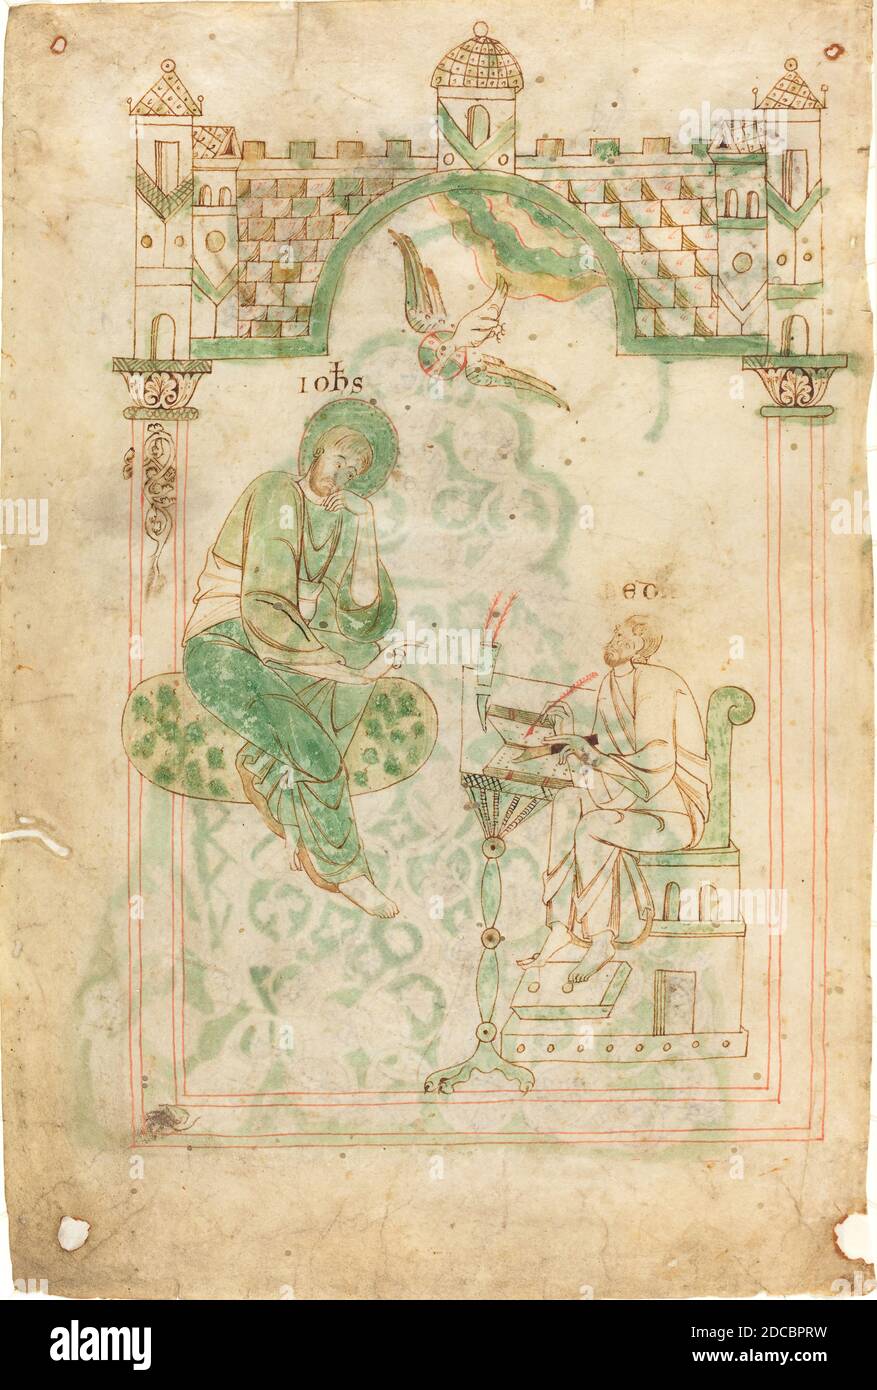 IOħS
alamy
alamy
Image ID: 2DCBPRW
www.alamy.com